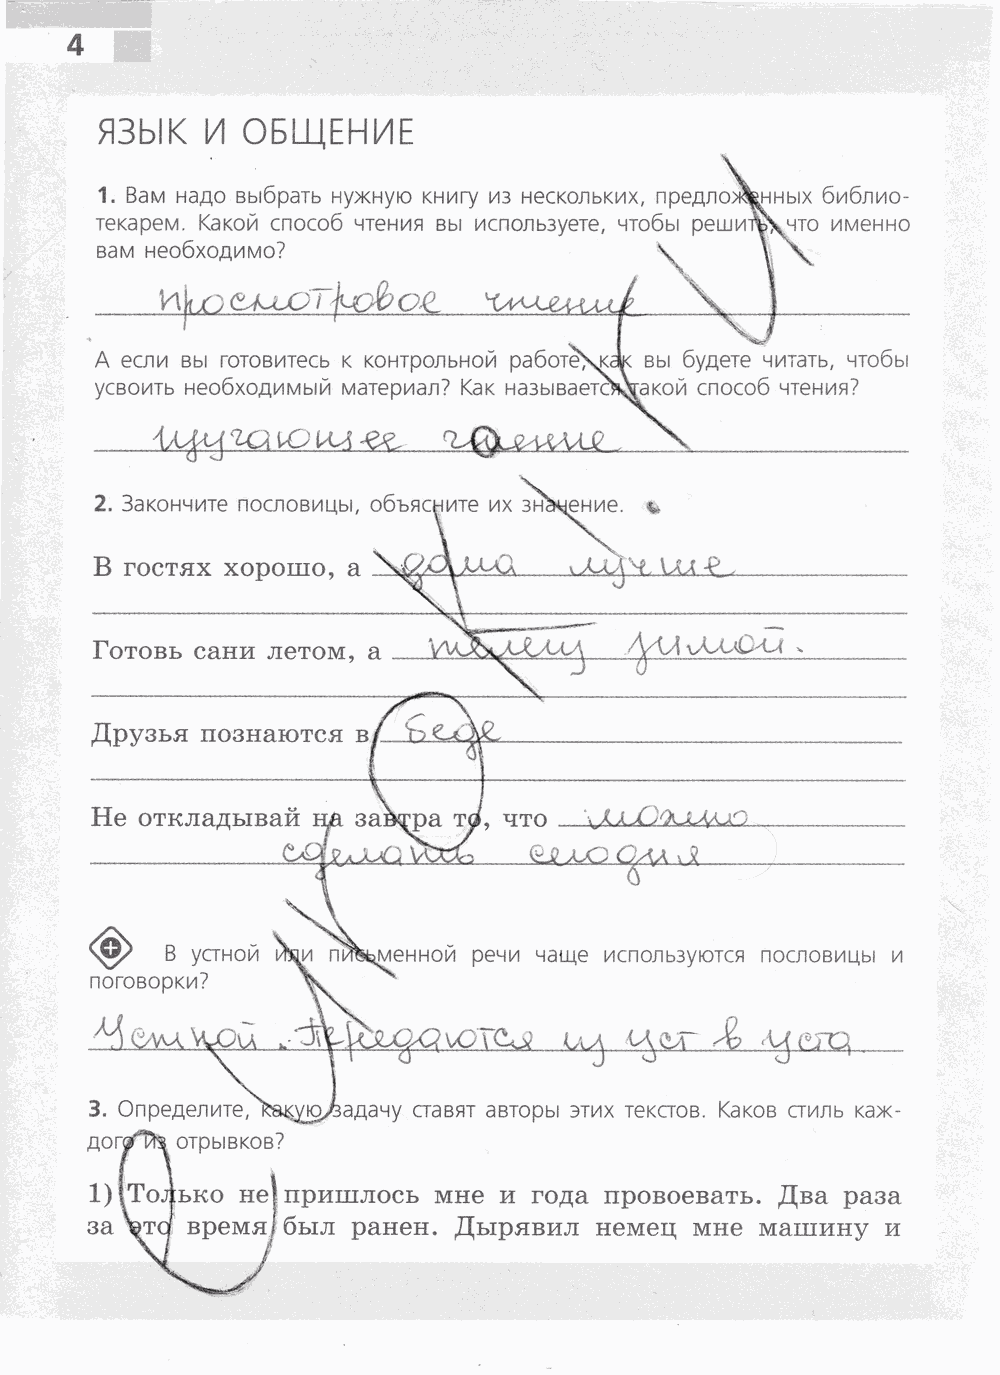 4
ЯЗЫК И ОБЩЕНИЕ
1. Вам надо выбрать нужную книгу из нескольких, предложенных библио-
текарем. Какой способ чтения вы используете, чтобы решить, что именно
вам необходимо?
просмотровое чтение
А если вы готовитесь к контрольной работе, как вы будете читать, чтобы
усвоить необходимый материал? Как называется такой способ чтения?
изучающее чтение
2. Закончите пословицы, объясните их значение.
В гостях хорошо, а дома лучше
Готовь сани летом, а телегу зимой.
Друзья познаются в беде
Не откладывай на завтра то, что можно
сделать сегодня
В устной или письменной речи чаще используются пословицы и
поговорки?
Устной. Передаются из уст в уста
3. Определите, какую задачу ставят авторы этих текстов. Каков стиль каж-
дого из отрывков?
1) Только не пришлось мне и года провоевать. Два раза
за это время был ранен. Дырявил немец мне машину и